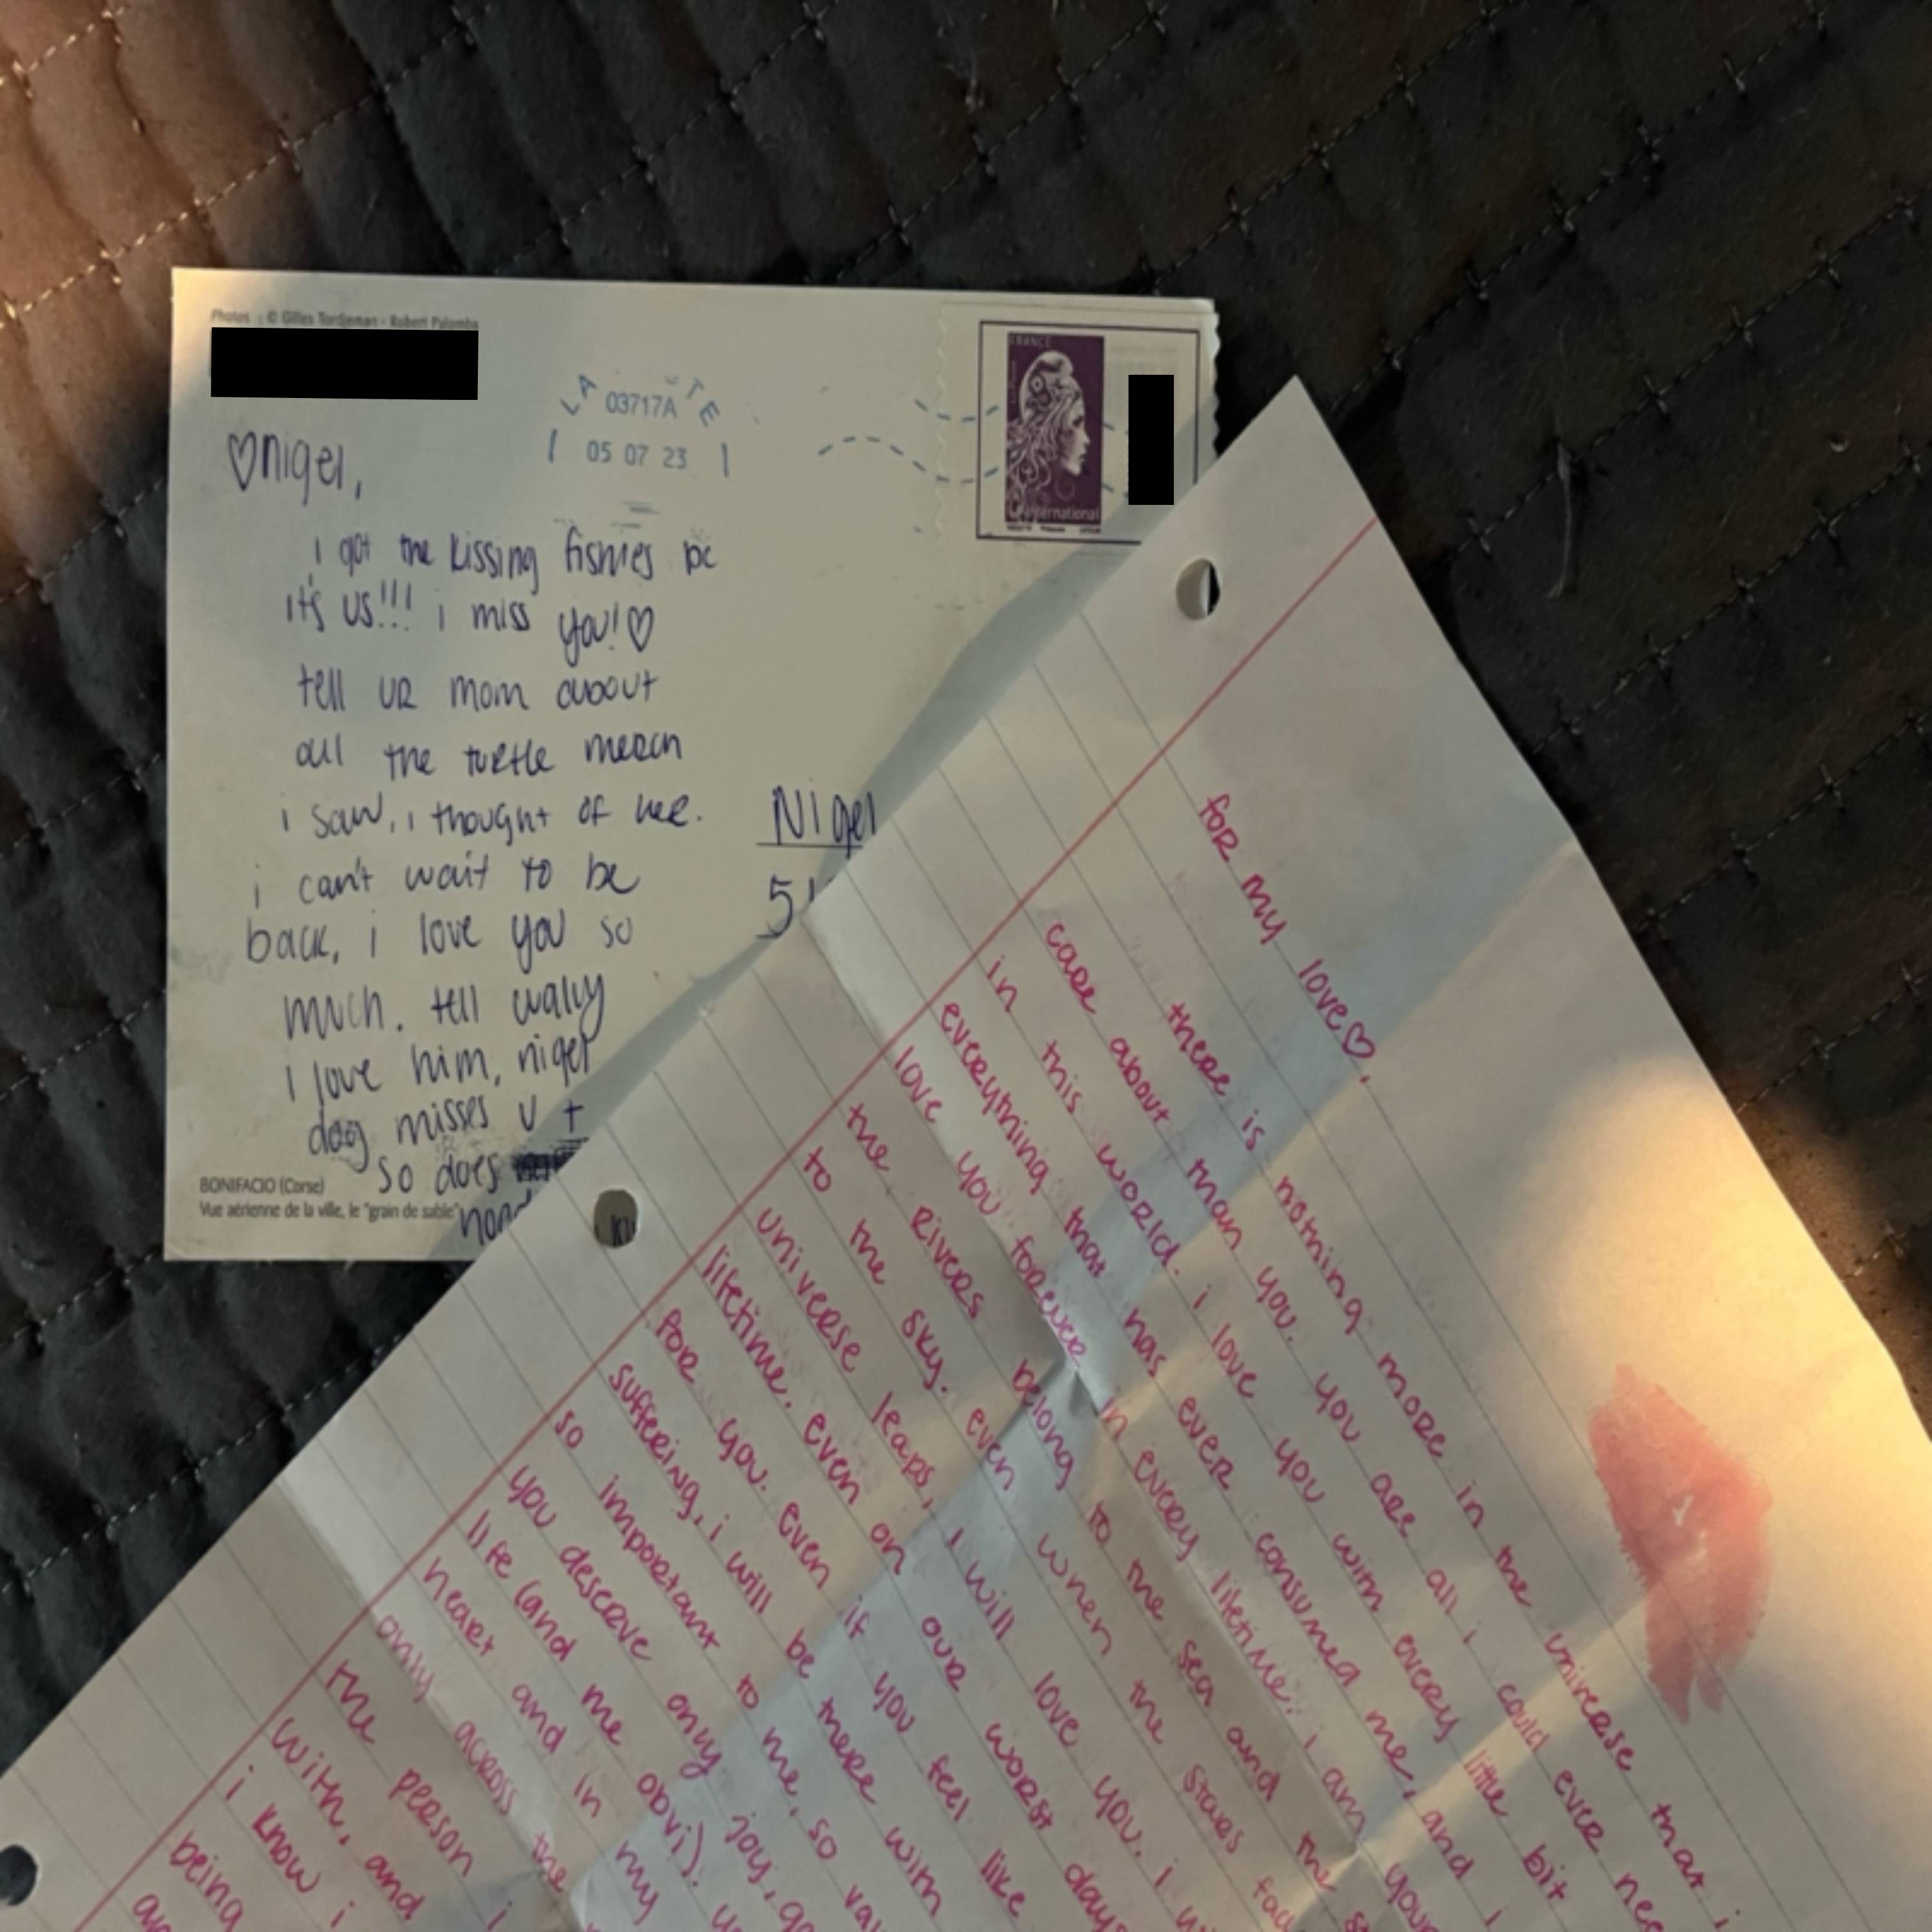 Photos : © Gilles Tordjeman - Robert Palomba
LA TE
03717A
05 07 23
FRANCE
International
♡nigel,
i got the kissing fishies bc
it's us!!! i miss you!♡
tell ur mom about
all the turtle merch
i saw, i thought of her.
i can't wait to be
back, i love you so
much. tell wally
i love him, nigel
dog misses u +
so does
BONIFACIO (Corse)
Vue aérienne de la ville, le "grain de sable"
Nigel
for my love♡,
there is nothing more in the universe that i
care about than you. you are all i could ever
in this world. i love you with every little bit
everything that has ever consumed me, and i
love you forever in every lifetime. i am
the rivers belong to the sea and the
to the sky. even when the stars
universe leaps, i will love you. i
lifetime. even on our worst days
for you. even if you feel like
suffering, i will be there with
so important to me, so
you deserve only joy,
life (and me obvi).
heart and in my
only across the
the person i
with, and
i know i
being